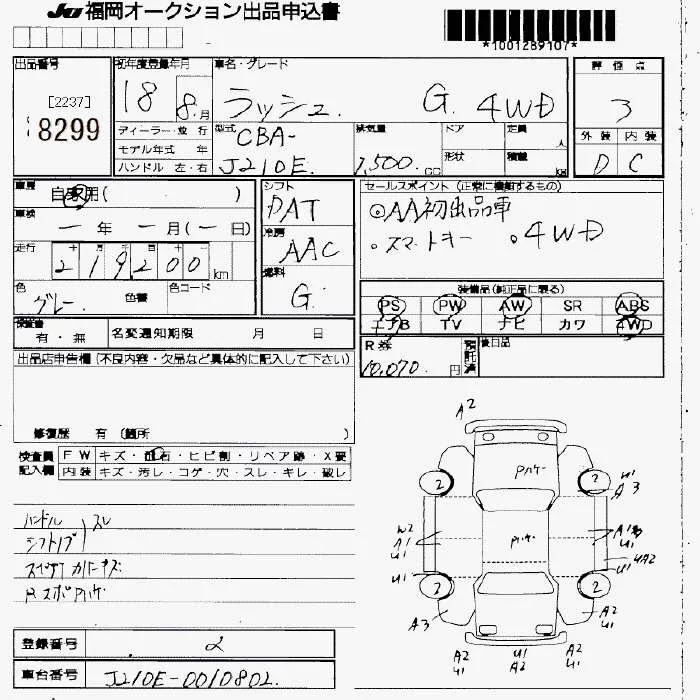 JU 福岡オークション出品申込書
*1001289107*
出品番号 初年度登録年月 車名・グレード 評価点
[2237] 8299
18 8 月 ラッシュ G 4WD 3
ディーラー・並行 型式 CBA- J210E 排気量 1,500 cc ドア 定員 人 外装 内装
モデル年式 年 形状 積載 kg D C
ハンドル 左・右
車歴 自家用( ) シフト DAT セールスポイント (正常に機能するもの)
車検 一年一月(一日) 冷房 AAC ◎AA初出品車
走行 219200 km 燃料 G ・スマートキー 。4WD
色 グレー 色替 色コード 装備品(純正品に限る)
PS PW AW SR ABS
エアB TV ナビ カワ 4WD
保証書 有・無 名変通知期限 月 日 R券 10,070 円 預託済 後日品
出品店申告欄 (不良内容・欠品など具体的に記入して下さい)
修復歴 有 (箇所 )
検査員 FW キズ・飛石・ヒビ割・リペア跡・X要
記入欄 内装 キズ・汚レ・コゲ・穴・スレ・キレ・破レ
ハンドル スレ
シフトノブ
スペアカバーキズ
A2
2 2 U1 A3
W2 A1 U1
U1 UA2 U1
2 2
A3 A2 U1
A2 U1 U1 A2 A2 U1
登録番号 2
車台番号 J210E-0010802